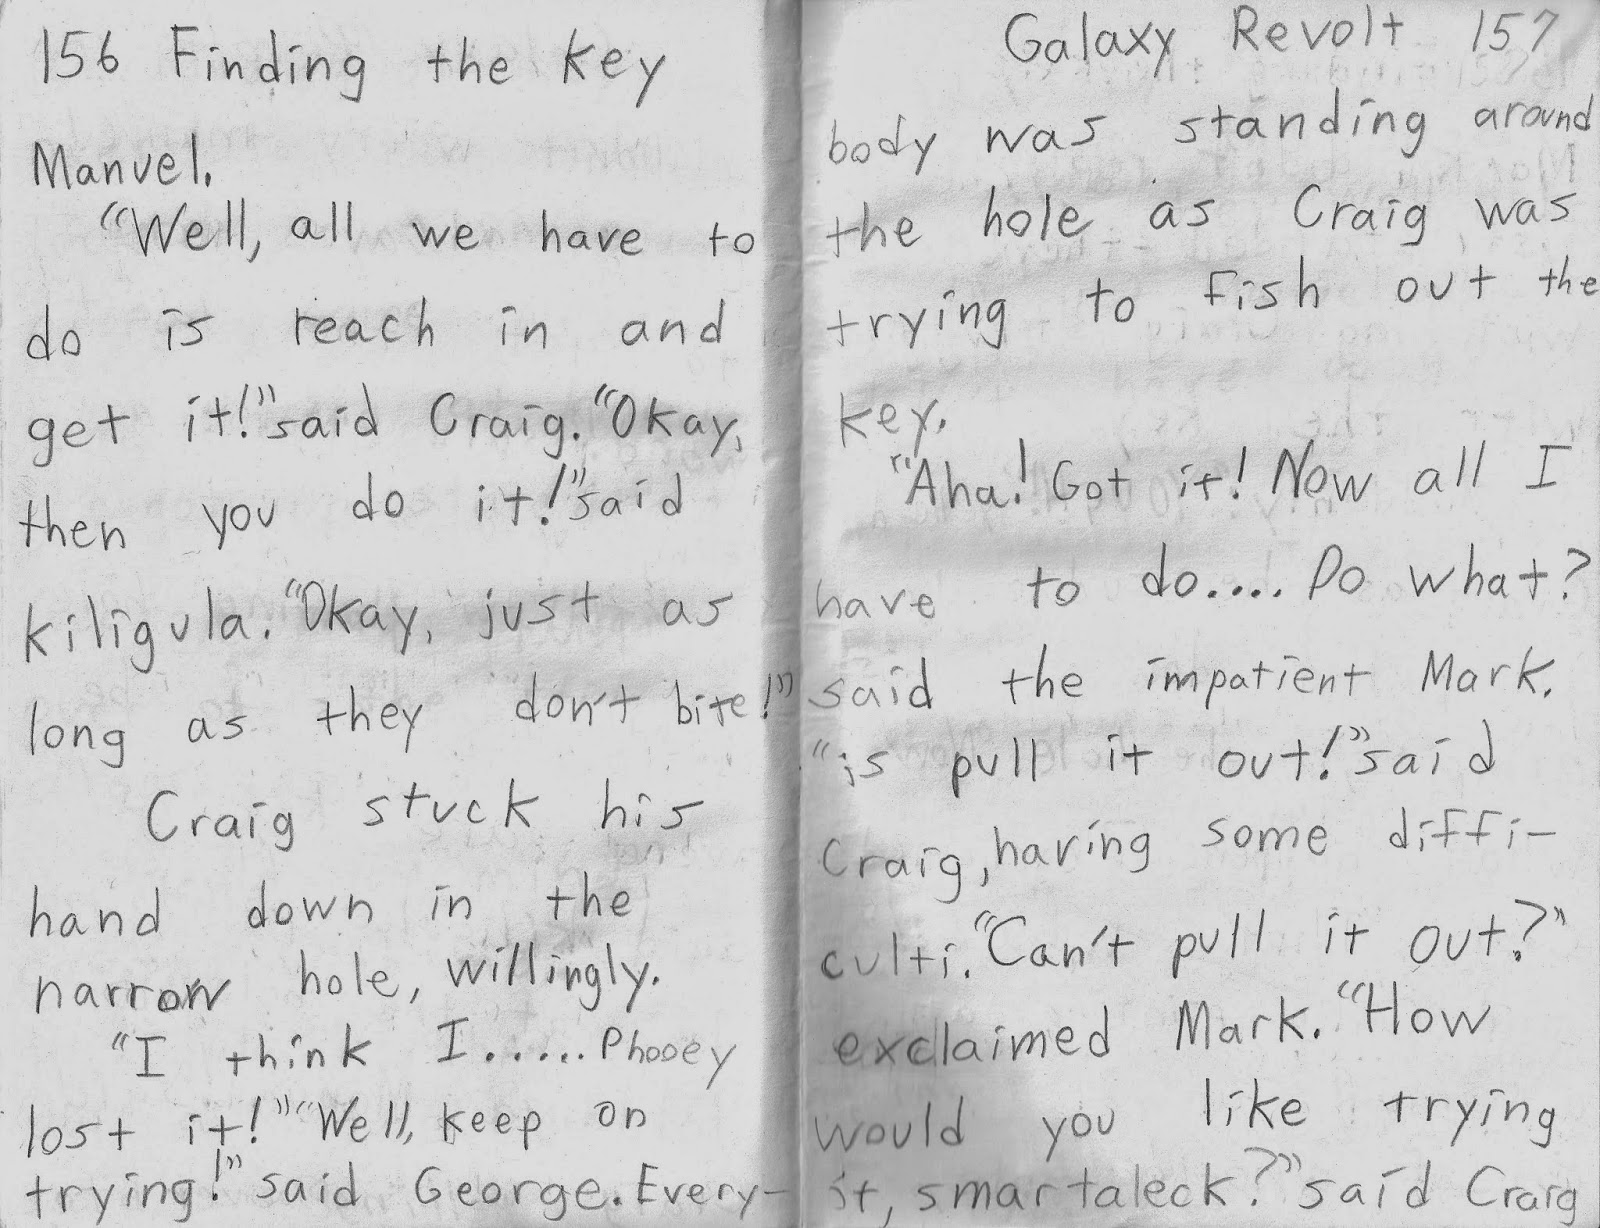 156 Finding the key
Manuel.
"Well, all we have to
do is reach in and
get it!" said Craig. "Okay,
then you do it!" said
kiligula. "Okay, just as
long as they don't bite!"
Craig stuck his
hand down in the
narrow hole, willingly.
"I think I..... Phooey
lost it!" "Well, keep on
trying!" said George. Every-
Galaxy Revolt 157
body was standing around
the hole as Craig was
trying to fish out the
key.
"Aha! Got it! Now all I
have to do.... Do what?
said the impatient Mark.
"is pull it out!" said
Craig, having some diffi-
culti. "Can't pull it out?"
exclaimed Mark. "How
would you like trying
it, smartaleck?" said Craig